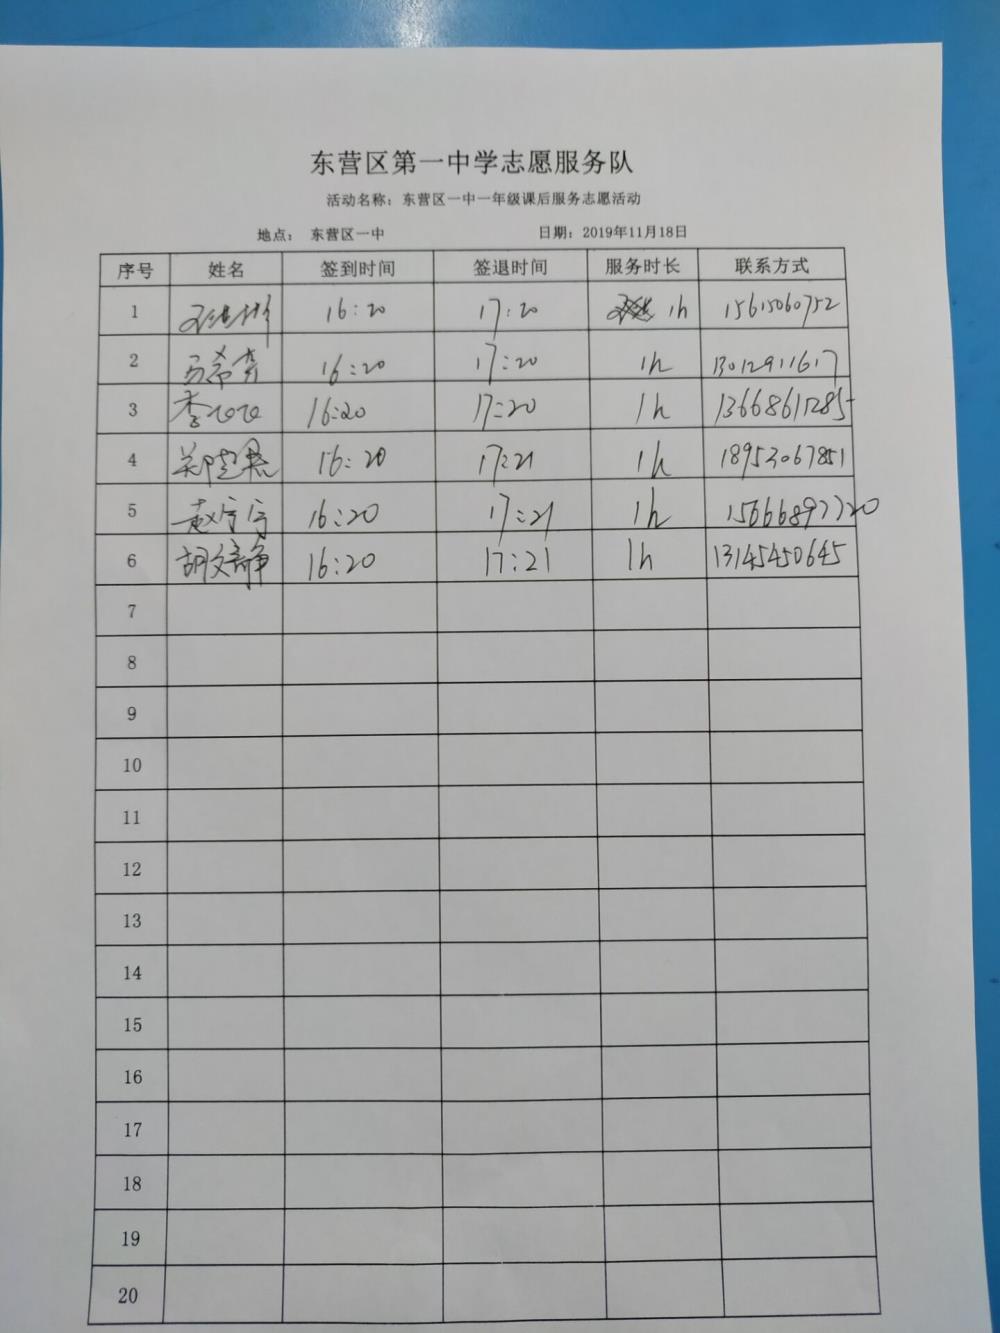 东营区第一中学志愿服务队
活动名称：东营区一中一年级课后服务志愿活动
地点： 东营区一中 日期：2019年11月18日
序号 姓名 签到时间 签退时间 服务时长 联系方式
1 16:20 17:20 1h 15615060752
2 马希 16:20 17:20 1h 13012911617
3 李 16:20 17:20 1h 13668615285
4 郑 16:20 17:21 1h 18953067851
5 赵宁宁 16:20 17:21 1h 15666897720
6 胡文静 16:20 17:21 1h 13145450645
7
8
9
10
11
12
13
14
15
16
17
18
19
20